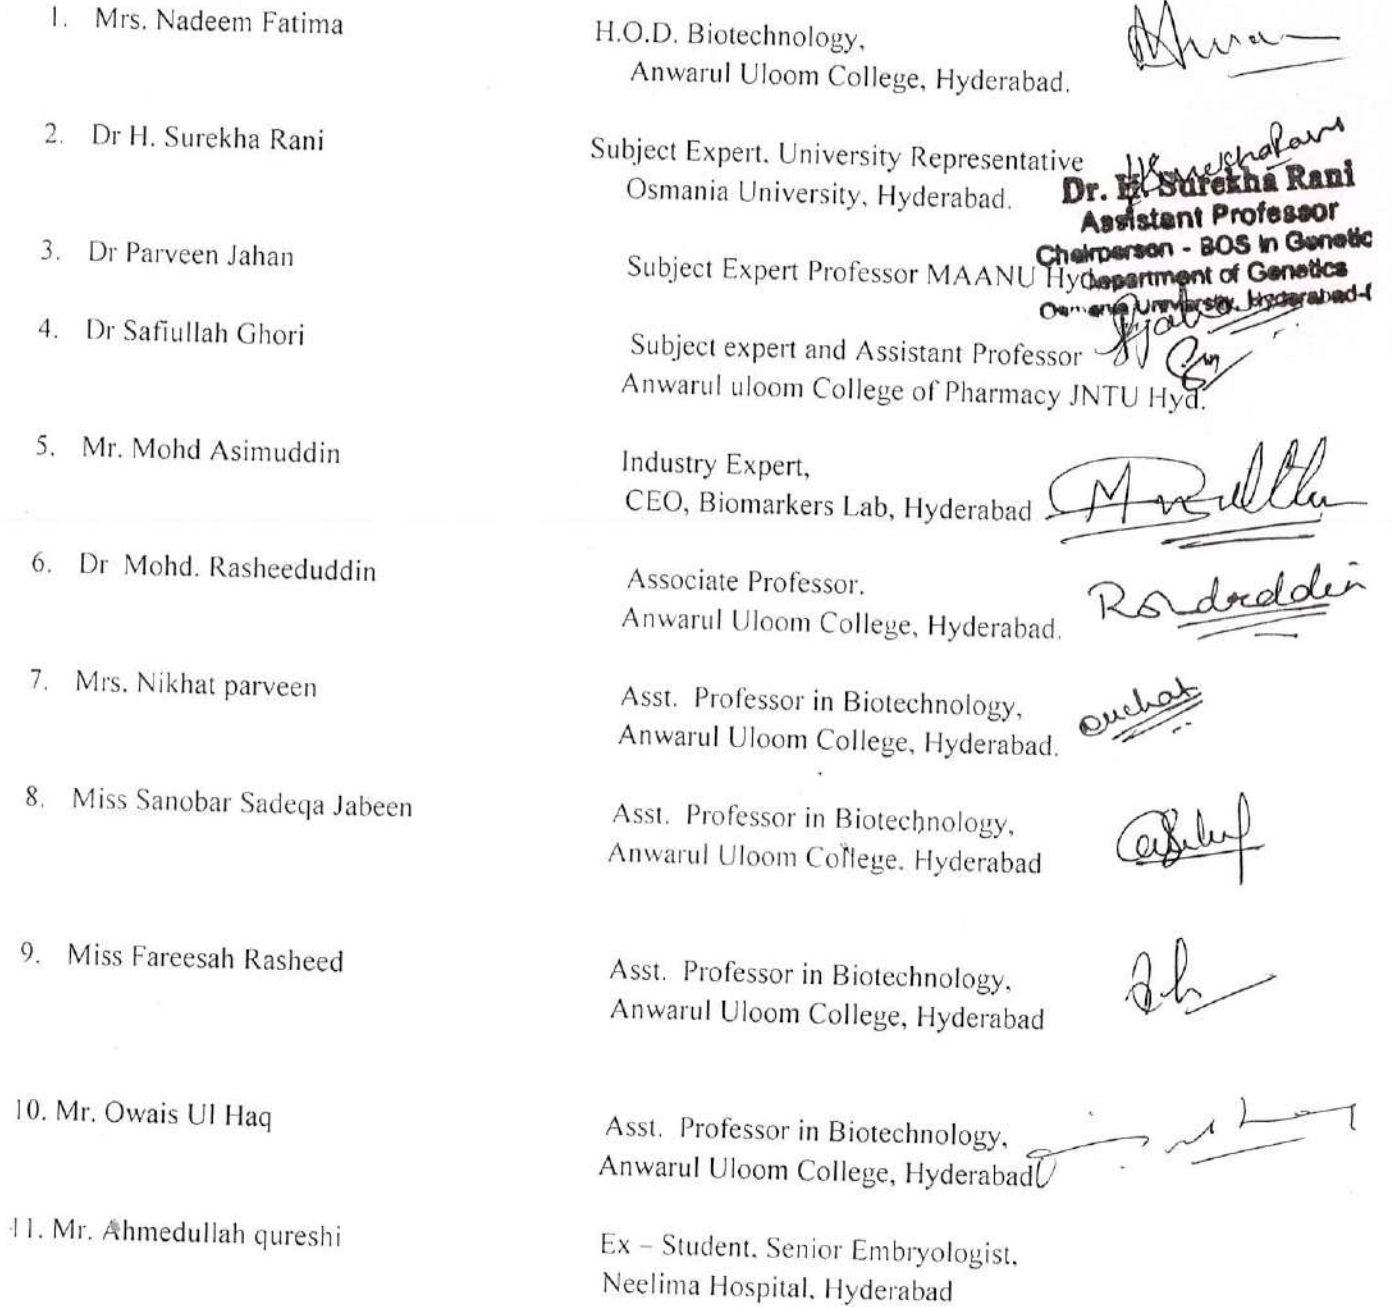 1. Mrs. Nadeem Fatima H.O.D. Biotechnology,
Anwarul Uloom College, Hyderabad.
2. Dr H. Surekha Rani Subject Expert. University Representative
Osmania University, Hyderabad.
HSurekhaRani
Dr. H. Surekha Rani
Assistant Professor
Chairperson - BOS in Genetic
Department of Genetics
Osmania University, Hyderabad-
3. Dr Parveen Jahan Subject Expert Professor MAANU Hyd
4. Dr Safiullah Ghori Subject expert and Assistant Professor
Anwarul uloom College of Pharmacy JNTU Hyd.
5. Mr. Mohd Asimuddin Industry Expert,
CEO, Biomarkers Lab, Hyderabad
6. Dr Mohd. Rasheeduddin Associate Professor.
Anwarul Uloom College, Hyderabad.
7. Mrs. Nikhat parveen Asst. Professor in Biotechnology,
Anwarul Uloom College, Hyderabad.
8. Miss Sanobar Sadeqa Jabeen Asst. Professor in Biotechnology,
Anwarul Uloom College. Hyderabad
9. Miss Fareesah Rasheed Asst. Professor in Biotechnology,
Anwarul Uloom College, Hyderabad
10. Mr. Owais Ul Haq Asst. Professor in Biotechnology,
Anwarul Uloom College, Hyderabad
11. Mr. Ahmedullah qureshi Ex – Student. Senior Embryologist,
Neelima Hospital, Hyderabad